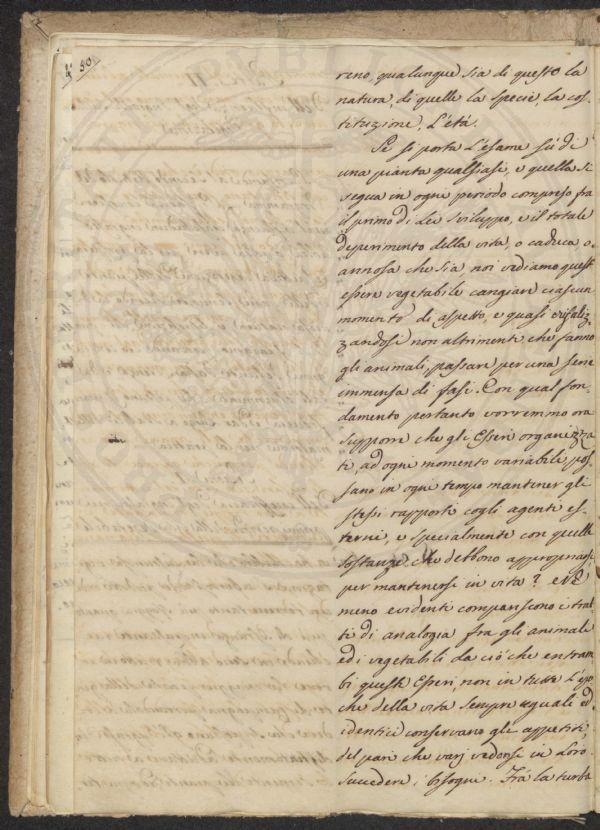 50
reno, qualunque sia di questo la
natura, di quelle la specie, la cos
tituzione, L'età.
Se si porta L'esame sù di
una pianta qualsiasi, e quella si
segua in ogni periodo compreso fra
il primo di Lei sviluppo, e il totale
deperimento della vita, o caduca, o
annosa che sia noi vediamo quest
essere vegetabile cangiare ciascun
momento di aspetto, e quasi crisaliz
zandosi non altrimenti che fanno
gli animali, passare per una serie
immensa di fasi. Con qual fon
damento pertanto vorremmo ora
supporre che gli Esseri organizza
ti, ad ogni momento variabile, pos
sano in ogni tempo mantener gli
stessi rapporti cogli agenti es
terni, e specialmente con quelle
sostanze, che debbono appropriarsi,
per mantenersi in vita? e Nè
meno evidenti compariscono i trat
ti di analogia fra gli animali
ed i vegetabili da ciò che entram
bi questi Esseri, non in tutte L'epo
che della vita sempre uguali ed
identici conservano gli appetiti,
del pari che varj vedonsi in Loro
succedere i bisogni. Frà la turba